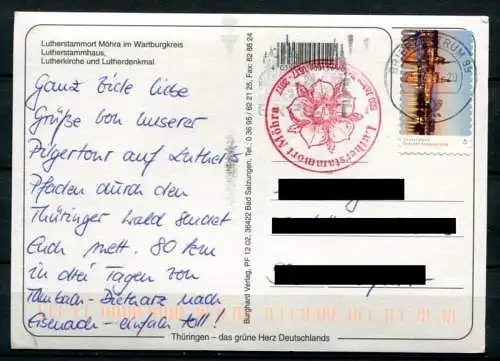 Lutherstammort Möhra im Wartburgkreis
Lutherstammhaus,
Lutherkirche und Lutherdenkmal
Ganz viele liebe
Grüße von unserer
Pilgertour auf Luther
Pfaden durch den
Thüringer Wald sendet
Euch
80 km
in drei Tagen von
Tambach-Dietharz nach
Eisenach - einfach toll!
Burghard Verlag, PF 12 02, 36422 Bad Salzungen, Tel.: 0 36 95 / 62 21 25, Fax: 62 88 24
Lutherstammort Möhra
BRIEFZENTRUM 99
Thüringen – das grüne Herz Deutschlands